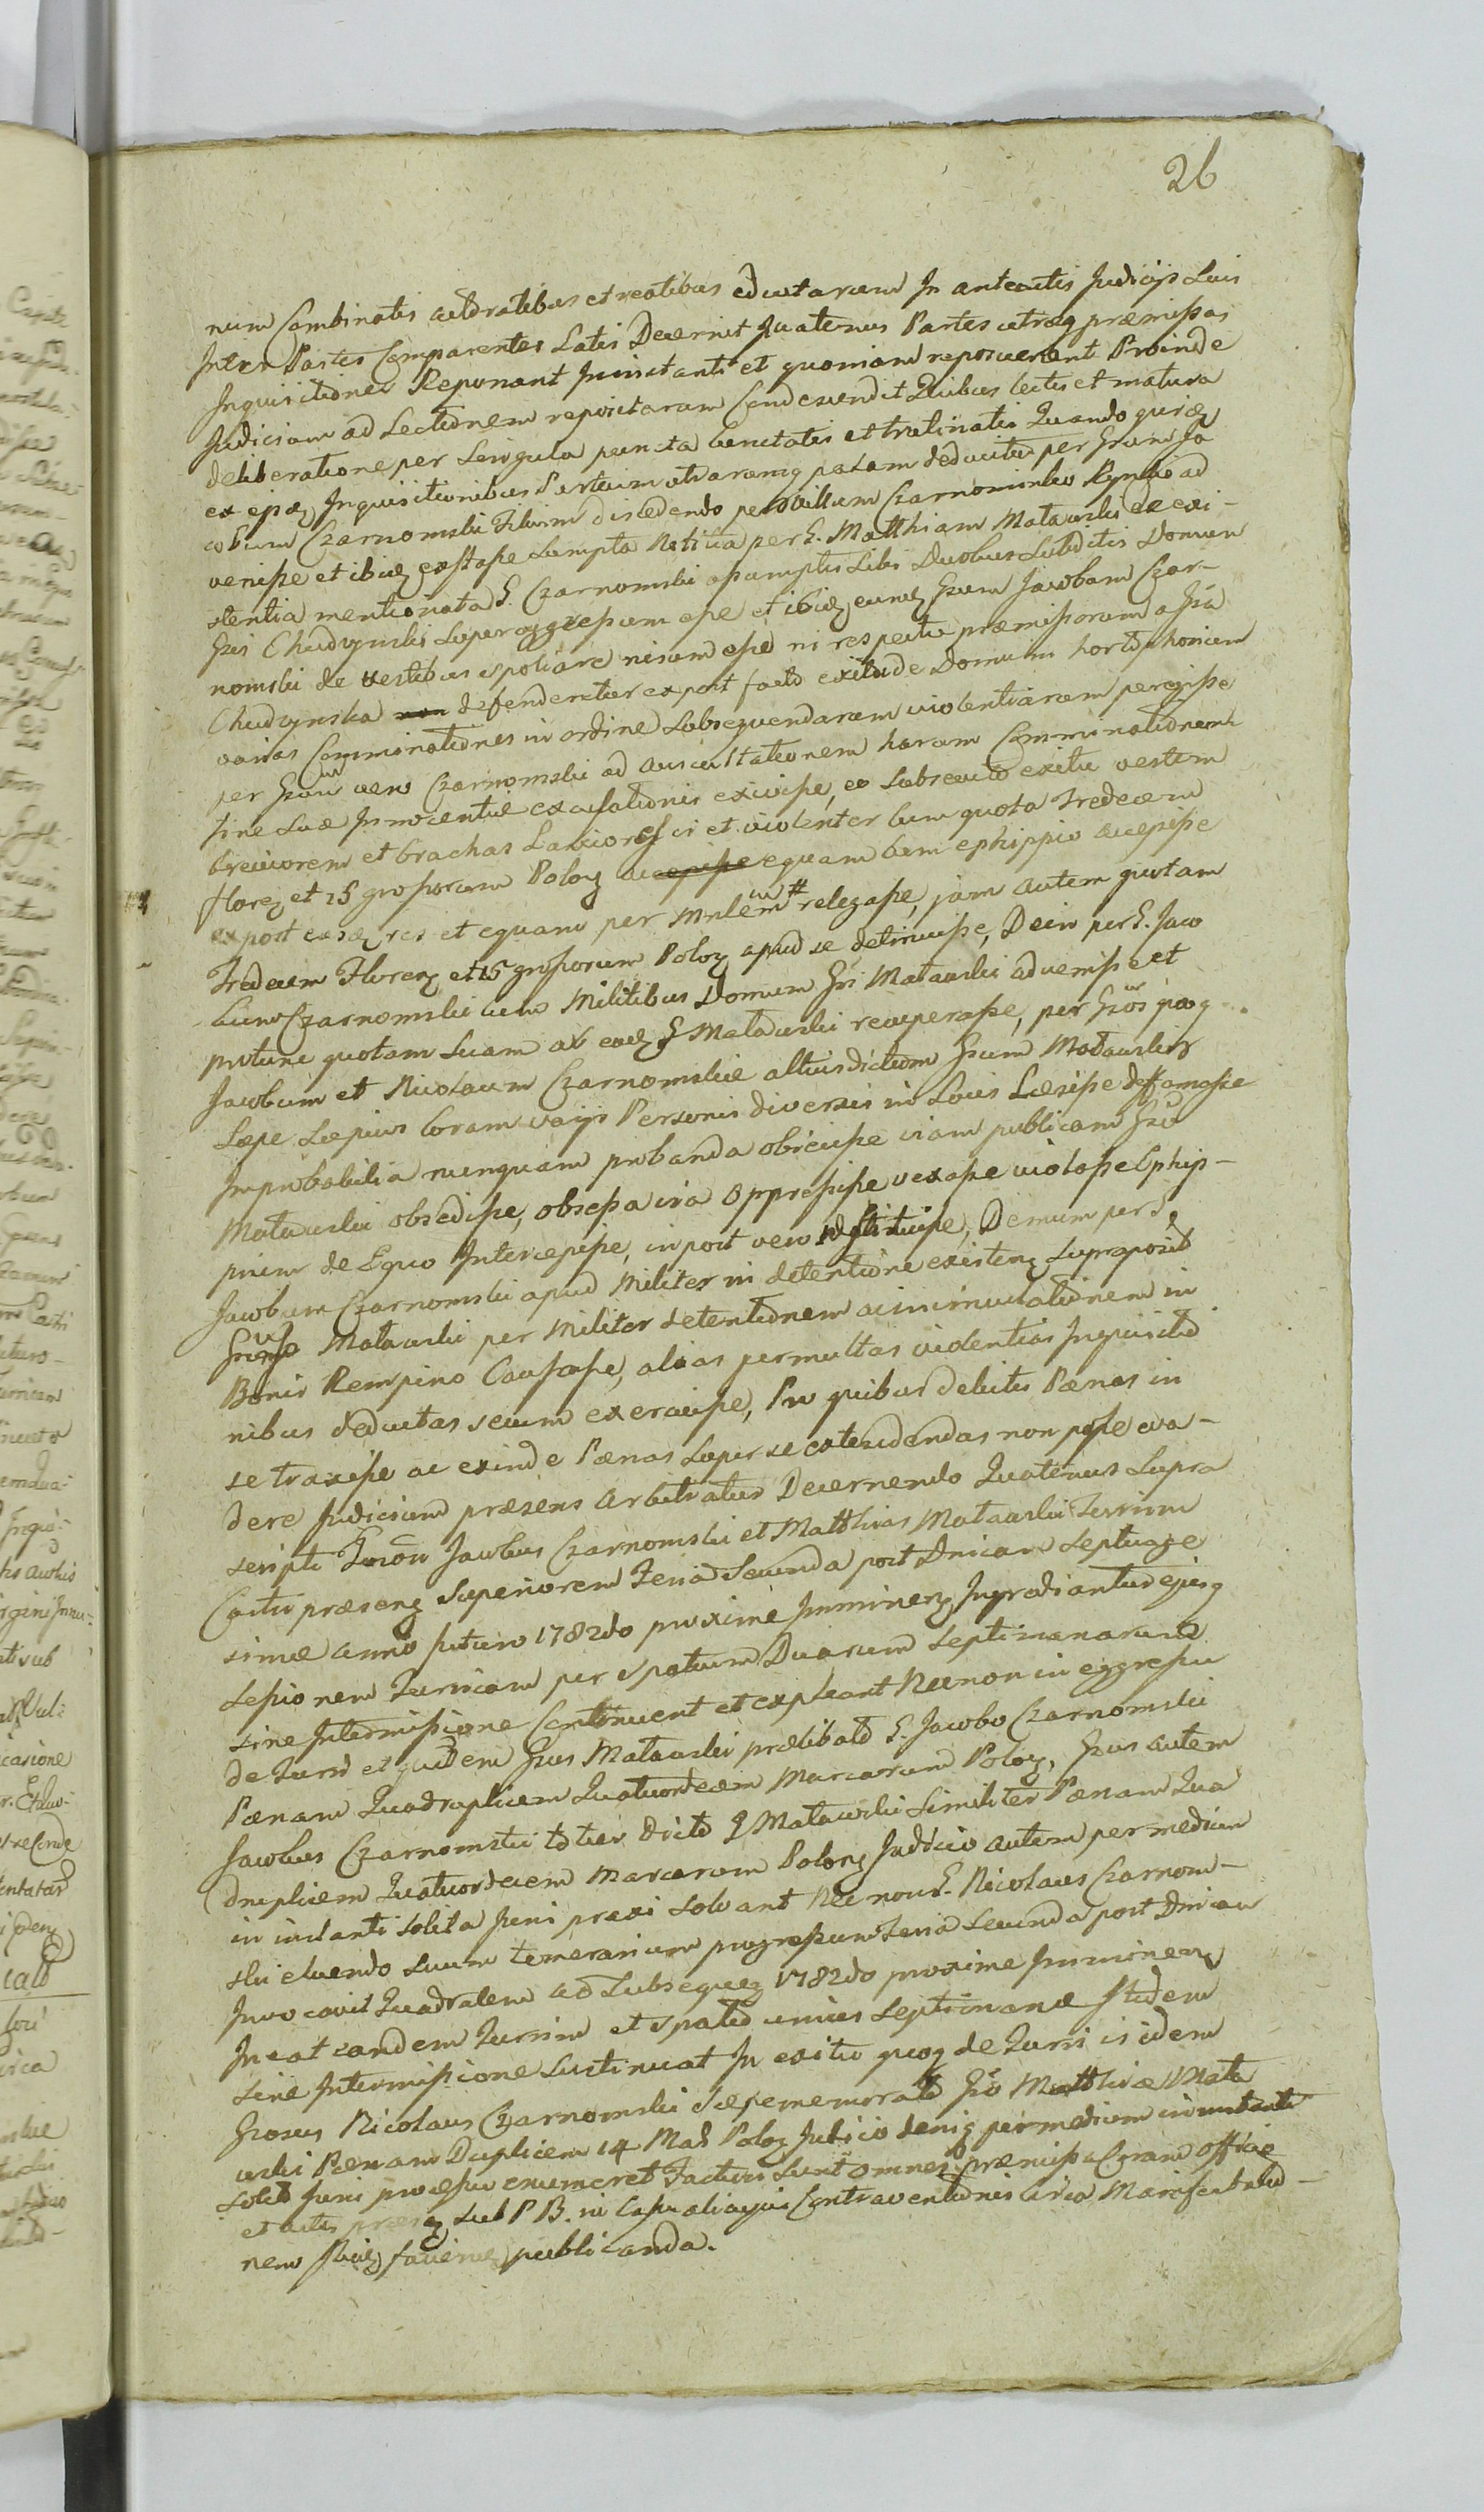 26
num Combinatis attratibus et reatibus eductarum In anteactis Judicijs Suis
Inter Partes Comparentes Latis Decernit Quatenus Partes utræq præmissas
Inquisitiones Reponant Ininstanti et quoniam reposuerunt Proinde
Judicium ad Lectionem repositarum Condescendit Quibus lectis et matura
deliberatione per Singula puncta Conctatis et trutinatis Quando quidq
ex ejsdq Inquisitionibus Partium utrarumq palam deducitur per Grum Ja
cobum Czarnomski Filium discedendo per villam Czarnominko Rynsko ad
venisse et ibidq exstasse Sumpta Notitia per G. Matthiam Matawski de exi-
stentia mentionata G. Czarnomski assumptis Sibi Duobus Subditis Domum
Gsi Chudzynski Superaggressum esse et ibidq eundq Grum Jacobum Czar-
nomski de vestibus spoliare nisum esse ni respectu præmissorum a Gsa
Chudzynska defenderetur expost facto exitu de Domum horto honium
varias Comminationes in ordine Subsequendarum violentiarum peregisse
per Grum vero Czarnomski ad auscultationem harum Comminationem
sine Suæ Innocentiæ excusationis exivisse, eo Subsecuto exitu vestem
breviorem et brachas Laxiores vi et violenter cum quota Tredecem
florq et 15 grossorum Polon accepisse equam cum ephippio accepisse
expost easdq res et equam per Mnlem # relegasse, jam autem quotam
Tredecem Florenq et 15 grossorum Polonq apud se detinuisse, Dein per G. Jaco
bum Czarnomski cum Militibus Domum Gsi Matawski advenisse et
protunc quotam Suam ab eodq G Matawski recuperasse, per Gsos quoq
Jacobum et Nicolaum Czarnomskie altius dictum Grum Matawski
Sæpe Sæpius Coram varijs Personis diversis in Locis Læsisse deffamasse
Improbabilia nunquam probanda objecisse viam publicam Gso
Matawski obsedisse, obsessa via oppressisse vexasse violasse Ephip-
pium de Equo Intercepisse, inpost vero restituisse, Demum per G.
Jacobum Czarnomski apud Milites in detentione existenq Supraposito
Matawski per Milites detentionem ac incinculationem in
Bonis Rempino Causasse, alias permultas violentias Inquisitio
nibus deductas secum exercuisse, Pro quibus debitis Pænas in
se traxisse ac exinde Pænas Super se extendendas non posse eva-
dere Judicium præsens arbitratur Decernendo Quatenus Supra
scripti Grosi Jacobus Czarnomski et Matthias Matawski Turrim
Castri præsenq Superiorem Feria Secunda post Dnicam Septuage
simæ anno futuro 1782do proxime Imminenq Ingrediantur ejusq
Sessionem Turricam per spatium Duarum Septimanarum
sine Intermissione Continuent et expleant Necnon in eggressu
de Turri et quidem Gsus Matawski prælibato G. Jacobo Czarnomski
Pænam Quadruplicem Quatuordecem Marcarum Polonq, Gsus autem
Jacobus Czarnomski toties dicto G Matawski Similiter Pænam Qua
druplicem Quatuordecem Marcarum Polonq Judicio autem per medium
in instanti Solita Juni praxi Solvant Nec non G. Nicolaus Czarnom-
ski eluendo Suum temerarium progressum Feria Secunda post Dnicam
Invocavit Quadralem ad Subsequenq 1782do proxime Imminenq
Ineat eandem Turrim et spatio unius Septimanæ Itidem
Sine Intermissione Sustineat In exitu quoq de Turri is idem
Grosus Nicolaus Czarnomski Sæpememorato Gso Matthiæ Mata
wski Pænam Duplicem 14 Mar Polonq Judicio deniq per medium in instanti
Solito Juni processu enumeret Facturi Sunt omnes præmissa Coram officio
et actis præsq Sub P B. in Casu alicujus Contraventionis circa Manifestatio-
nem Ibidq faciendq publicanda.